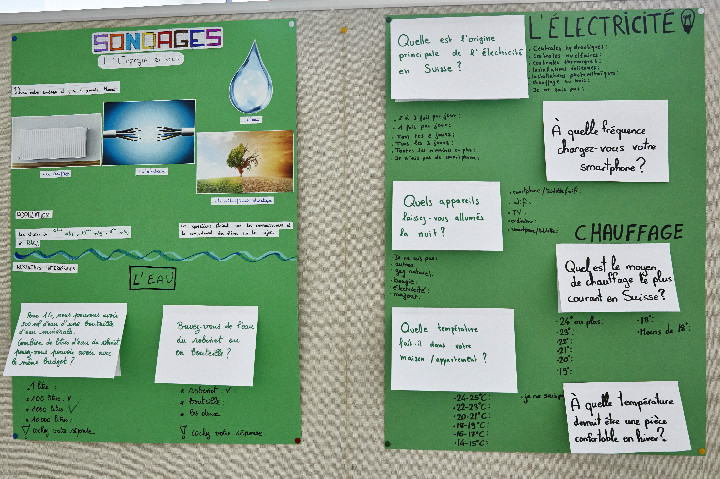 SONDAGES
L'eau
L'EAU
Pour 1.-, nous pouvons avoir
500 ml d'eau d'une bouteille
d'eau minérale.
Combien de litres d'eau du robinet
pouvez-vous avoir avec
le même budget ?
1 litre :
100 litres :
1000 litres :
10000 litres :
cochez votre réponse
Buvez-vous de l'eau
du robinet ou
en bouteille ?
robinet
bouteille
les deux
cochez votre réponse
L'ÉLECTRICITÉ
Quelle est l'origine
principale de l'électricité
en Suisse ?
• Centrales hydrauliques :
• Centrales nucléaires :
• Centrales thermiques :
• Installations éoliennes :
• Installations photovoltaïques :
• Chauffage au bois :
• Je ne sais pas :
À quelle fréquence
chargez-vous votre
smartphone ?
• 2 à 3 fois par jour :
• 1 fois par jour :
• Tous les 2 jours :
• Tous les 3 jours :
• Toutes les semaines ou plus :
• Je n'ai pas de smartphone :
Quels appareils
laissez-vous allumés
la nuit ?
• Wifi :
• TV :
• ordinateur :
CHAUFFAGE
Quel est le moyen
de chauffage le plus
courant en Suisse ?
• Je ne sais pas :
• autres :
• gaz naturel :
• bougie :
• électricité :
• mazout :
Quelle température
fait-il dans votre
maison / appartement ?
• 24-25°C :
• 22-23°C :
• 20-21°C :
• 18-19°C :
• 16-17°C :
• 14-15°C :
• je ne sais pas
• 24° ou plus :
• 23° :
• 22° :
• 21° :
• 20° :
• 19° :
• 18° :
• Moins de 18° :
À quelle température
devrait être une pièce
confortable en hiver ?